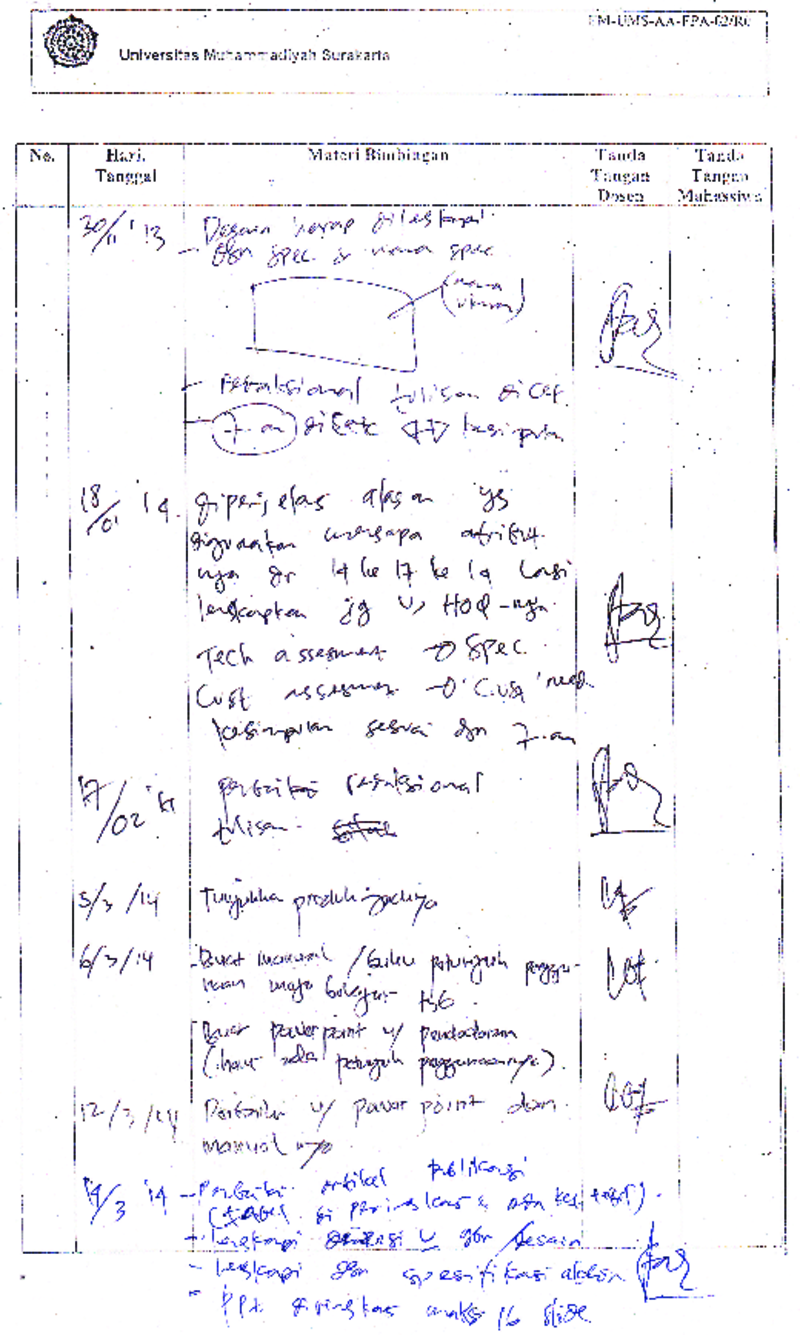 FM-UMS-AA-FPA-02/R0
Universitas Muhammadiyah Surakarta
No.
Hari, Tanggal
Materi Bimbingan
Tanda Tangan Dosen
Tanda Tangan Mahasiswa
30/11 '13 Desain harap dilengkapi
- dgn spec & nama spec
(nama
ukuran)
- redaksional tulisan dicek
- 7-an dicek kesimpulan
18/01 '14 diperjelas alasan yg
digunakan mengapa atribut
nya dr 14 ke 17 ke 14 lagi
lengkapkan jg u/ HOQ-nya
Tech assesment → spec
Cust assesmen → Cust need
kesimpulan sesuai dgn 7-an
17/02 '14 perbaiki redaksional
tulisan
5/3/14 Tunjukkan produk jadinya
6/3/14 - Buat manual / buku petunjuk penggu-
naan meja belajar tsb.
Buat powerpoint u/ pendadaran
petunjuk penggunaannya).
12/3/14 Perbaiki u/ power point dan
manual nya
14/3 '14 - Perbaiki artikel publikasi
(tabel di
- lengkapi u gbr desain
- lengkapi dgn spesifikasi
- PPt diringkas maks 16 slide